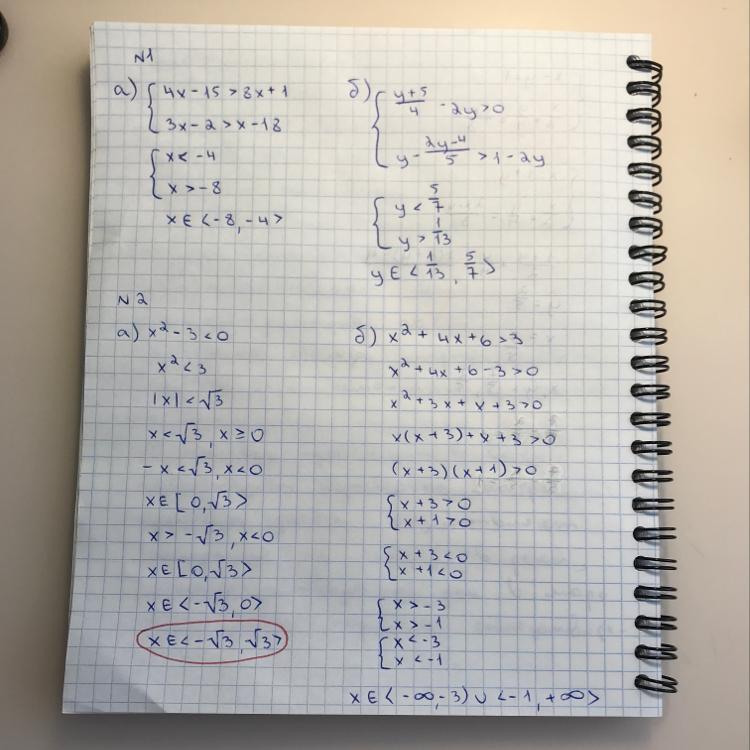 N1
а) { 4x - 15 > 8x + 1
3x - 2 > x - 18
{ x < -4
x > -8
x ∈ < -8, -4 >
б) { (y+5)/4 - 2y > 0
y - (2y-4)/5 > 1 - 2y
{ y < 5/7
y > 1/13
y ∈ < 1/13, 5/7 >
N2
а) x² - 3 < 0
x² < 3
|x| < √3
x < √3, x ≥ 0
- x < √3, x < 0
x ∈ [0, √3 >
x > -√3, x < 0
x ∈ [0, √3 >
x ∈ < -√3, 0 >
x ∈ < -√3, √3 >
б) x² + 4x + 6 > 3
x² + 4x + 6 - 3 > 0
x² + 3x + x + 3 > 0
x(x + 3) + x + 3 > 0
(x + 3)(x + 1) > 0
{ x + 3 > 0
x + 1 > 0
{ x + 3 < 0
x + 1 < 0
{ x > -3
x > -1
{ x < -3
x < -1
x ∈ < -∞, -3) ∪ < -1, +∞ >